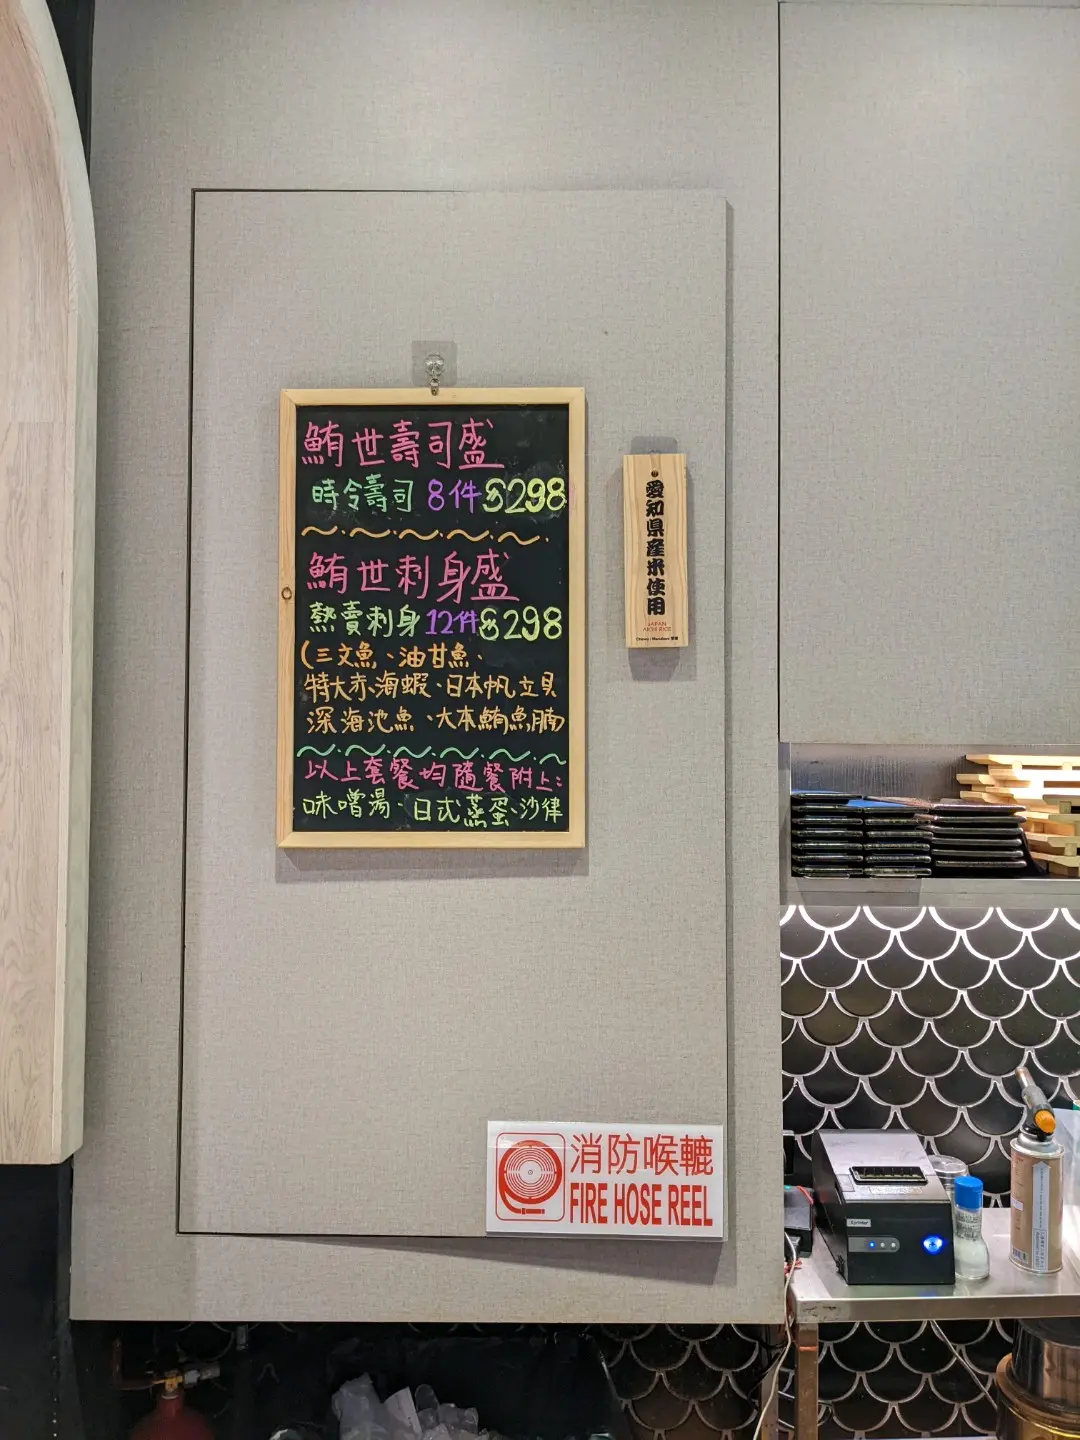 鮪世壽司盛
時令壽司 8件$298
鮪世刺身盛
熱賣刺身12件$298
(三文魚、油甘魚、
特大赤海蝦、日本帆立貝
深海池魚、大本鮪魚腩
以上套餐均隨餐附上:
味噌湯、日式蒸蛋、沙律
愛知県産米使用
JAPAN
AICHI RICE
消防喉轆
FIRE HOSE REEL